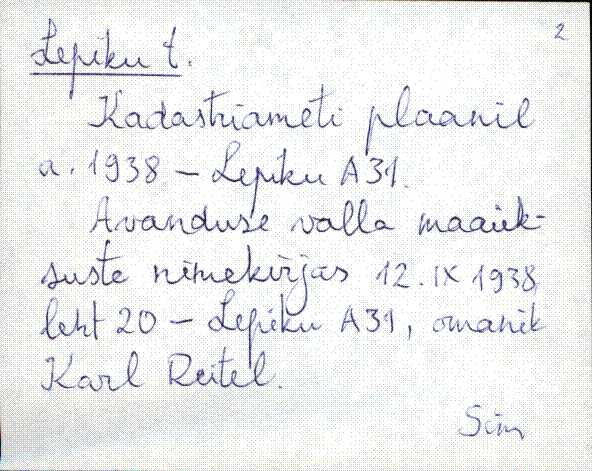 2
Lepiku t.
Kadastriameti plaanil
a. 1938 – Lepiku A31.
Avanduse valla maaük-
suste nimekirjas 12. IX 1938
leht 20 – Lepiku A31, omanik
Karl Reitel.
Sim